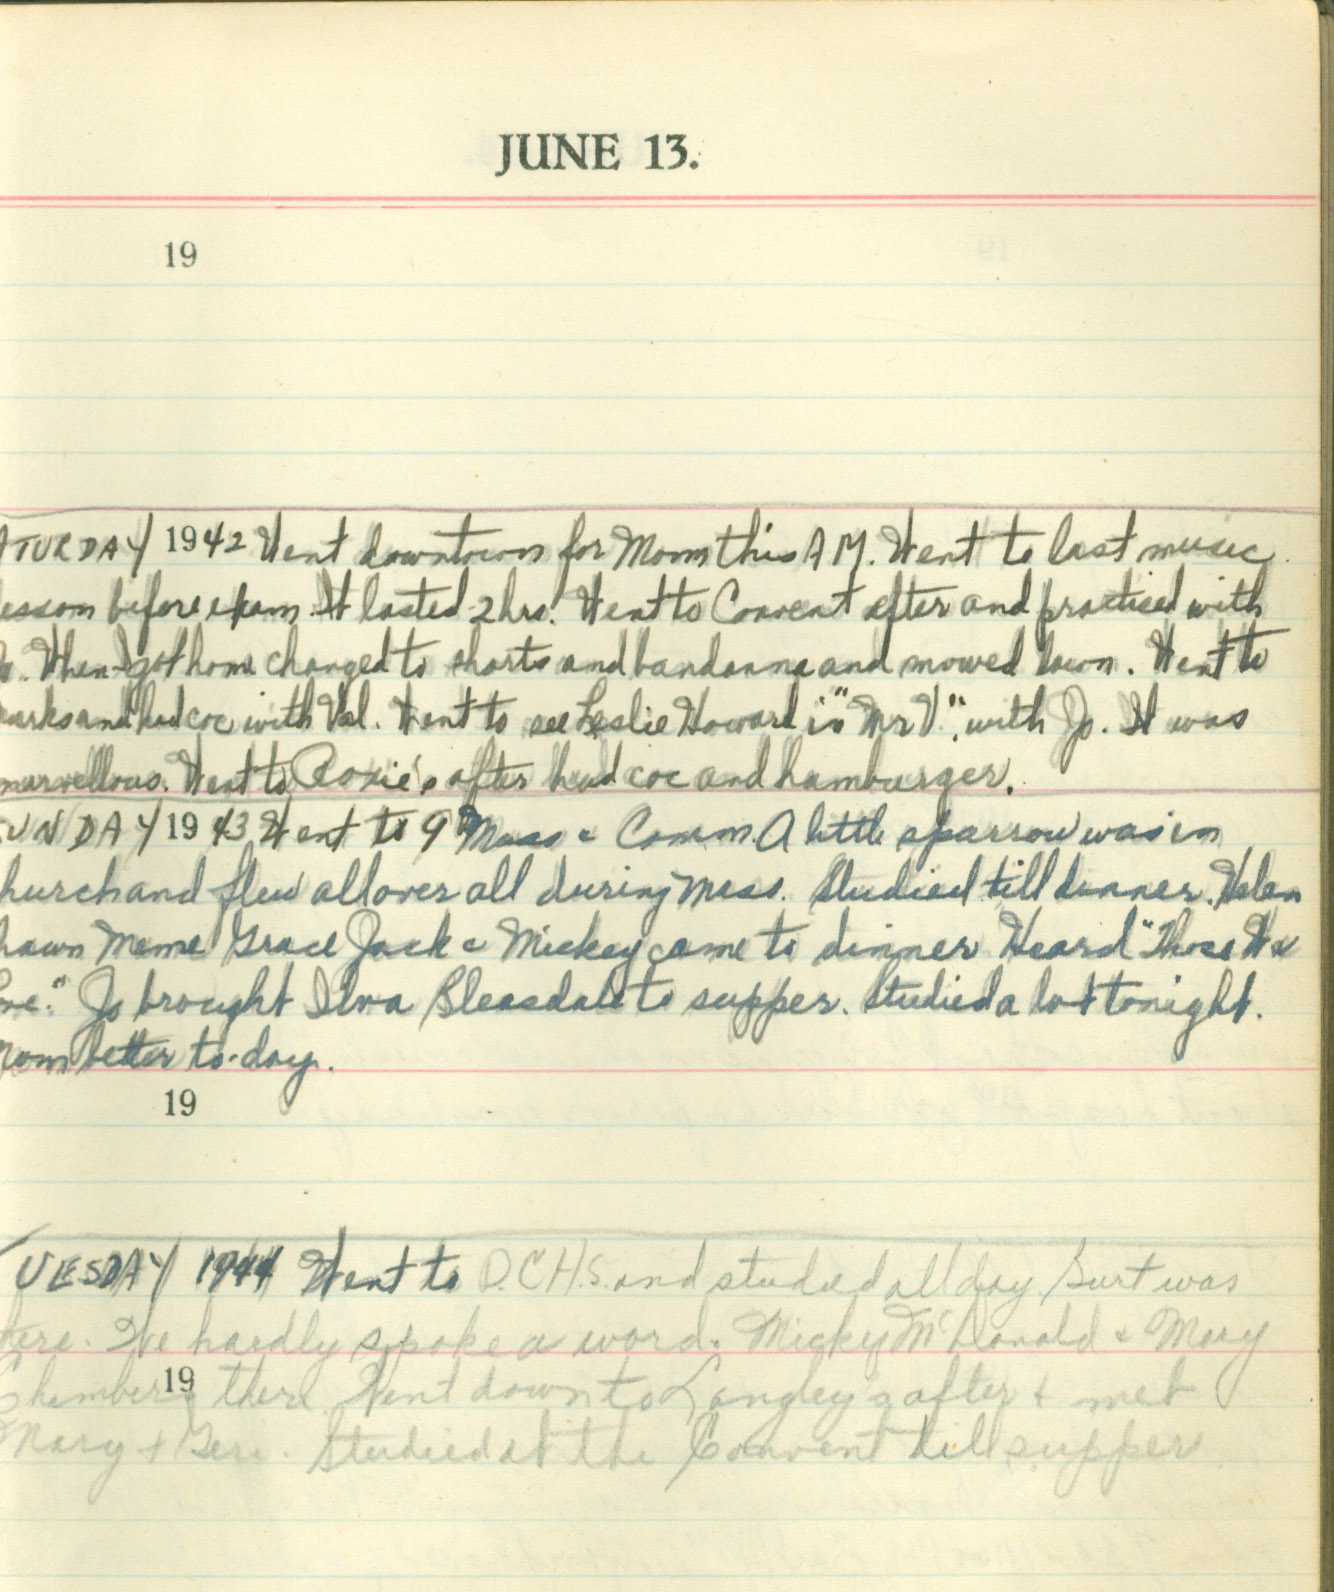 JUNE 13.
19
ATURDAY 1942 Went downtown for Mom this A M. Went to last music
esson before exam. It lasted 2 hrs. Went to Convent after and practised with
o. When I got home changed to shorts and bandanna and mowed lawn. Went to
arks and had coc with Val. Went to see Leslie Howard in "Mr V". with Jo. It was
marvellous. Went to Roxie's after had coc and hamburger.
UNDAY 1943 Went to 9 Mass & Comm. A little sparrow was in
hurch and flew all over all during Mass. Studied till dinner. Helen
hawn Meme Grace Jack & Mickey came to dinner. Heard "Those We
ove." Jo brought Ilva Bleasdale to supper. Studied a lot tonight.
Mom better to-day.
19
TUESDAY 1944 Went to D.C.H.S. and studied all day Burt was
here. We hardly spoke a word. Micky McDonald & Mary
Chambers there. Went down to Langley's after & met
19
Mary & Geri. Studied at the Convent till supper